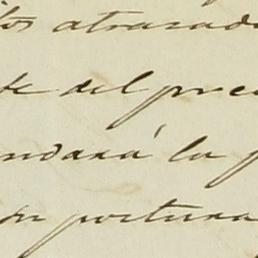 itos atrasado
te del prece
ndará la p
ón portuna